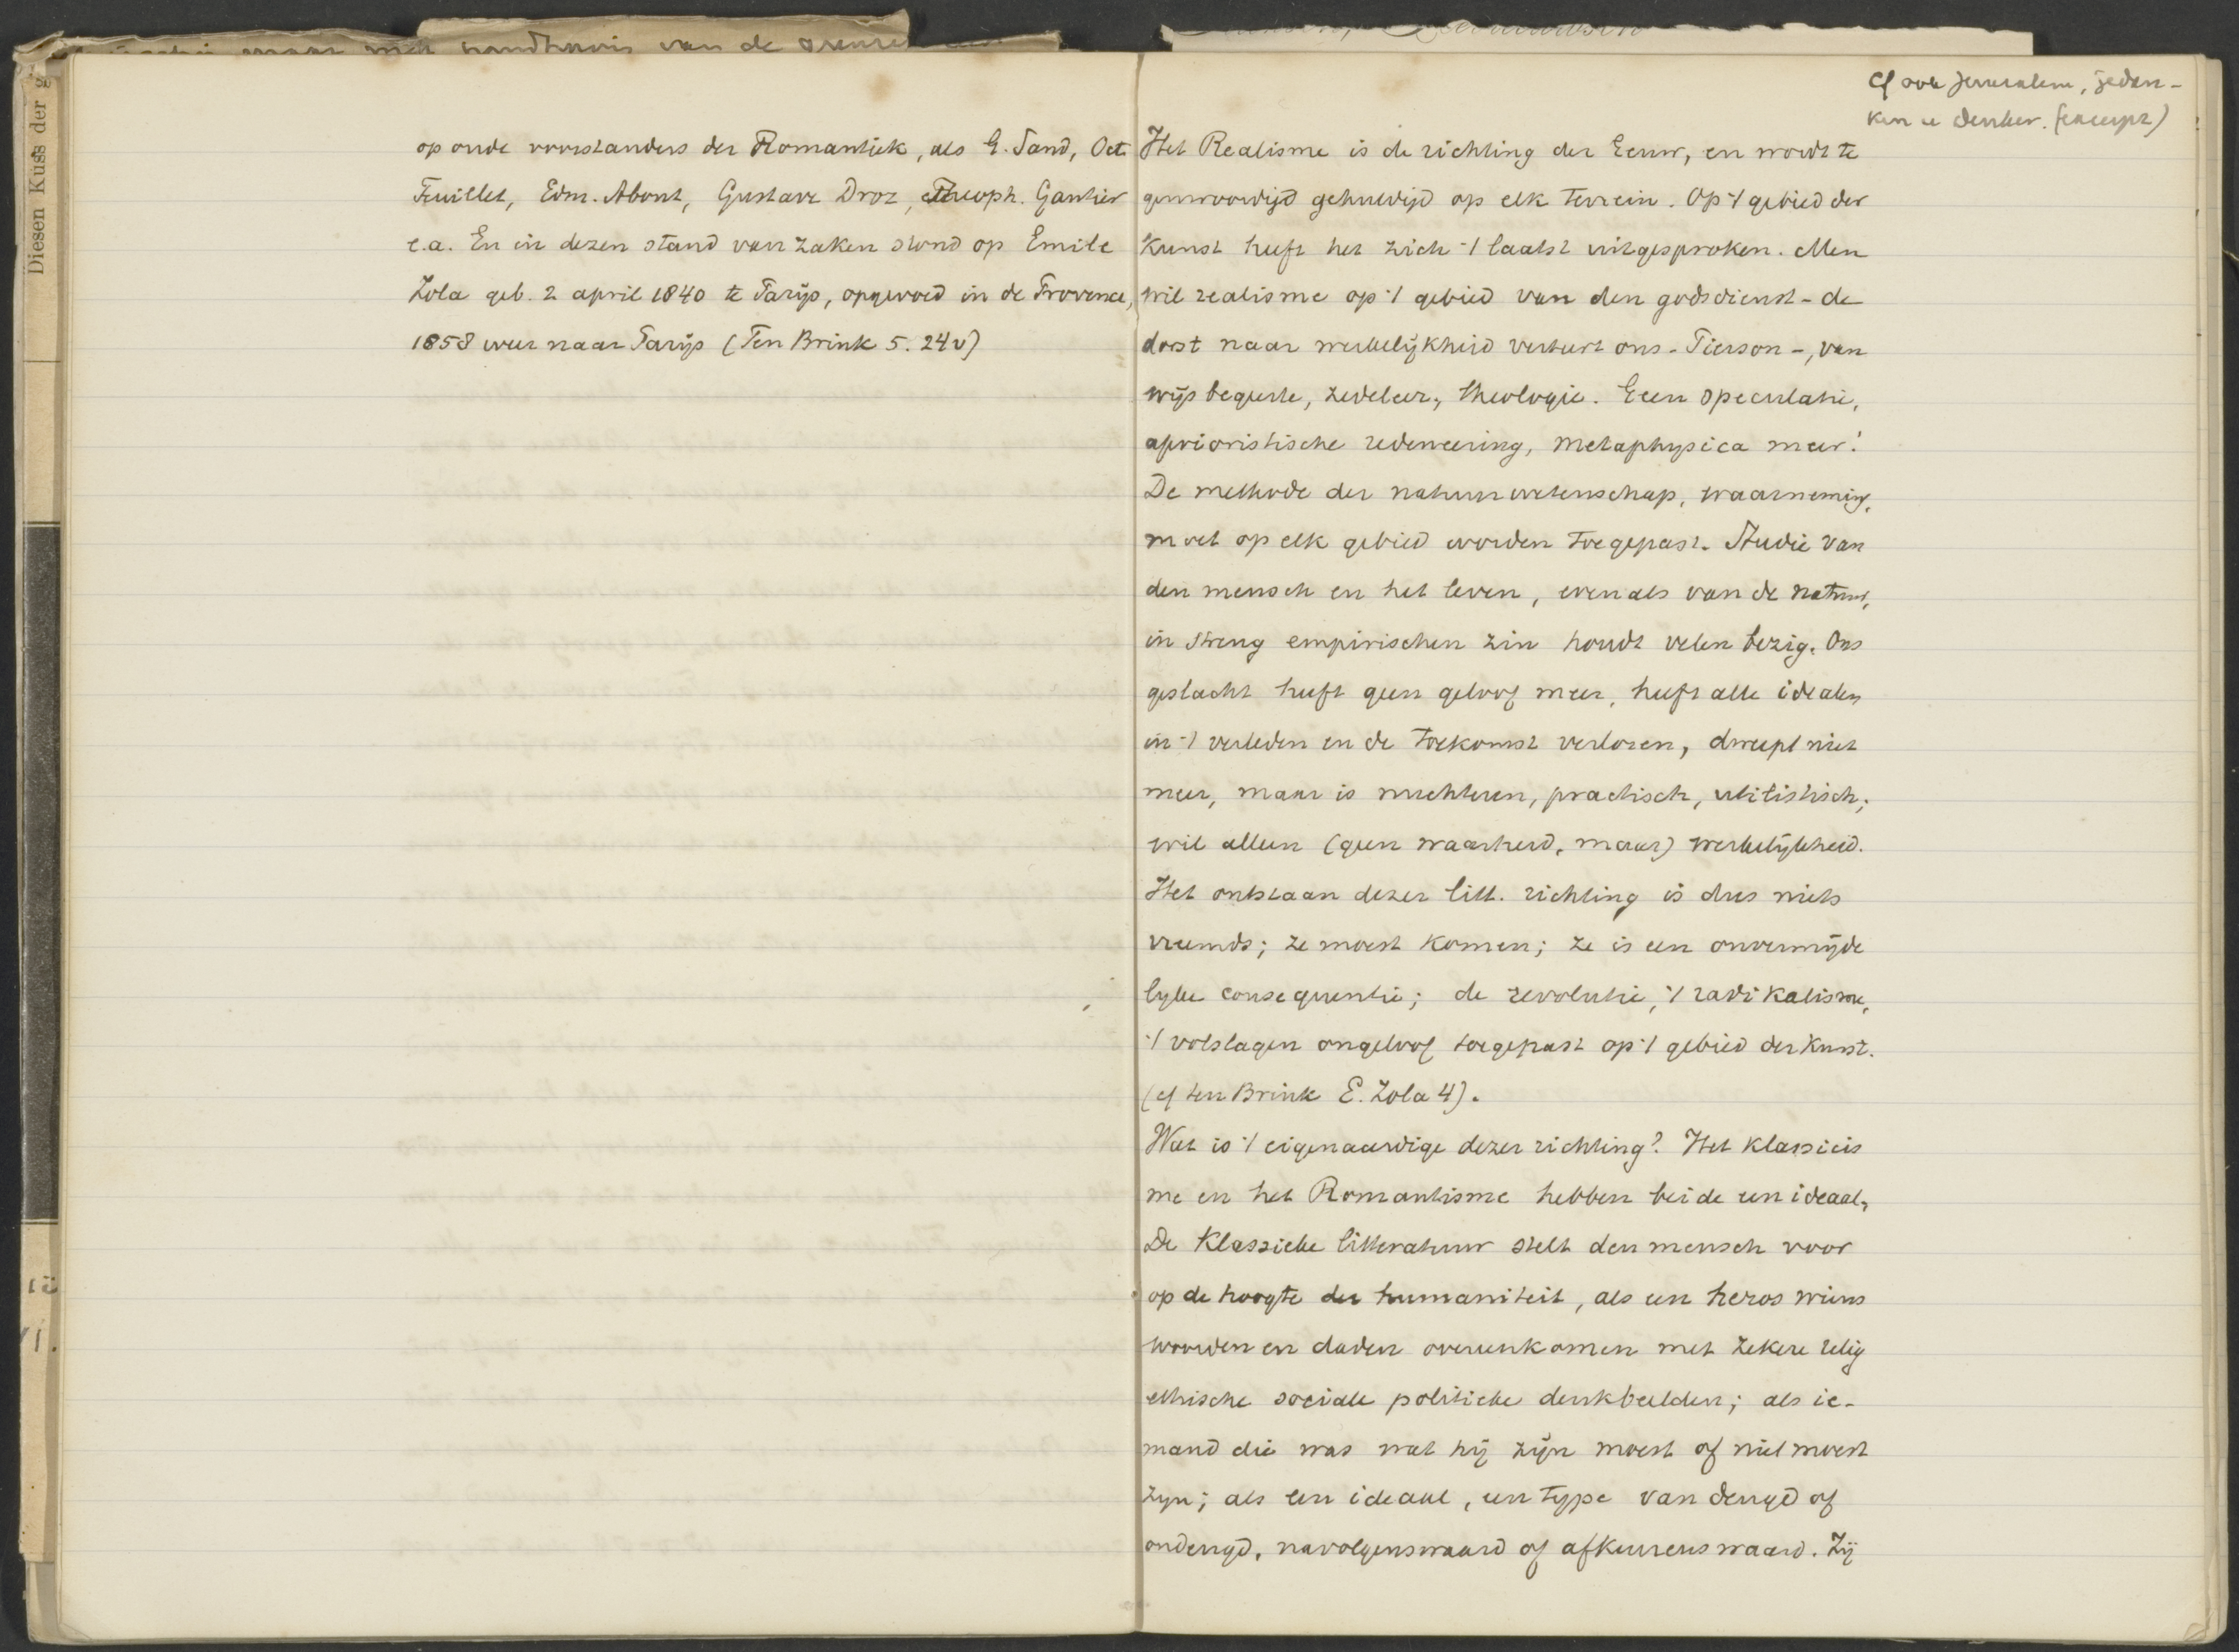 maar mits handhavis van de grenzen
Diesen Kuss der g
op oude voorstanders der Romantiek, als G. Sand, Oct.
Feuillet, Edm. About, Gustave Droz, Theoph. Gautier
e.a. En in dezen stand van zaken stond op Emile
Zola geb. 2 april 1840 te Parijs, opgevoed in de Provence,
1858 weer naar Parijs (Ten Brink 5. 24v)
Cf ook Jerusalem,
denker. (excerpt)
Het Realisme is de richting der Eeuw, en wordt te
genwoordigd gehuldigd op elk terrein. Op 't gebied der
Kunst heeft het zich 't laatst uitgesproken. Men
wil realisme op 't gebied van den godsdienst - de
dorst naar werkelijkheid verteert ons - Pierson -, van
wijsbegeerte, zedeleer, theologie. Geen speculatie,
aprioristische redeneering, metaphysica meer!
De methode der natuurwetenschap, waarneming,
moet op elk gebied worden toegepast. Studie van
den mensch en het leven, evenals van de natuur,
in streng empirischen zin houdt velen bezig. Ons
geslacht heeft geen geloof meer, heeft alle idealen
in 't verleden en de toekomst verloren, dweept niet
meer, maar is nuchteren, practisch, utilistisch;
wil alleen (geen waarheid, maar) werkelijkheid.
Het ontstaan dezer litt. richting is dus niets
vreemds; ze moest komen; ze is een onvermijde
lyke consequentie; de revolutie, 't radikalisme,
't volslagen ongeloof toegepast op 't gebied der kunst.
(cf ten Brink E. Zola 4).
Wat is 't eigenaardige dezer richting? Het klassicis
me en het Romantisme hebben beide een ideaal,
De Klassieke litteratuur stelt den mensch voor
op de hoogte der humaniteit, als een heros wiens
woorden en daden overeenkomen met zekere relig
ethische sociale politieke denkbeelden; als ie-
mand die was wat hij zijn moest of niet moest
zyn; als een ideaal, een type van deugd of
ondeugd, navolgenswaard of afkeurenswaard. Zij